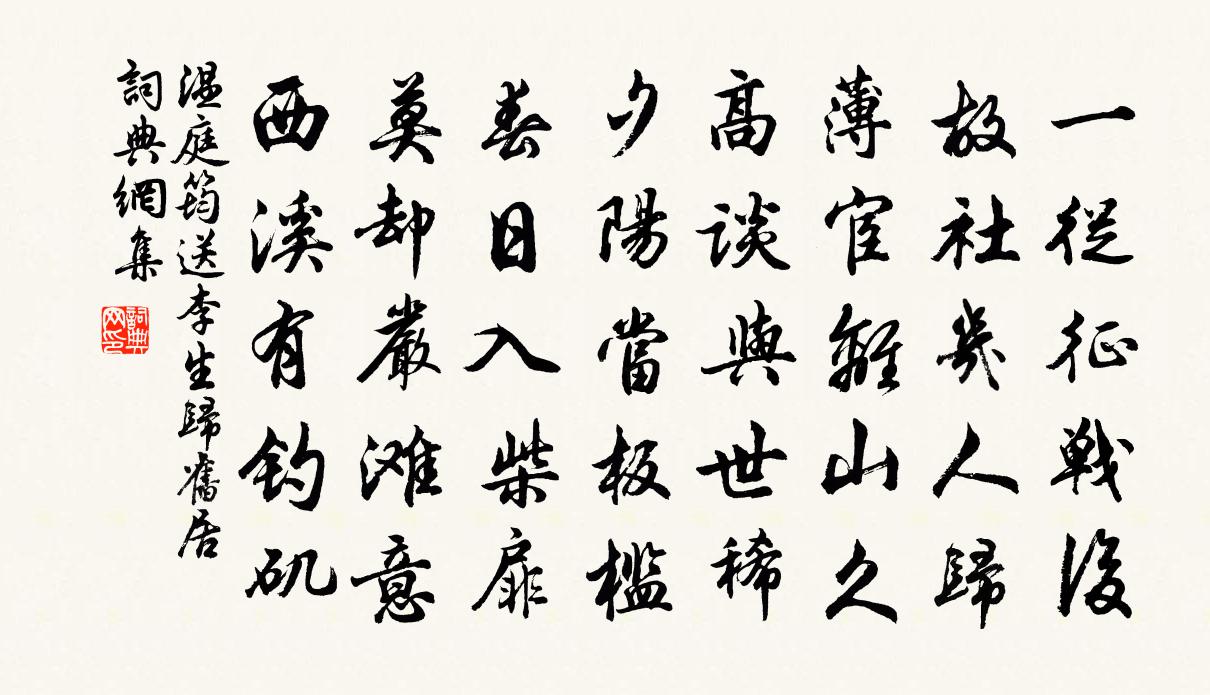 一從征戰後
故社幾人歸
薄宦離山久
高談與世稀
夕陽當板檻
春日入柴扉
莫却嚴滩意
西溪有釣矶
温庭筠送李生歸舊居
詞典網集
詞典网印